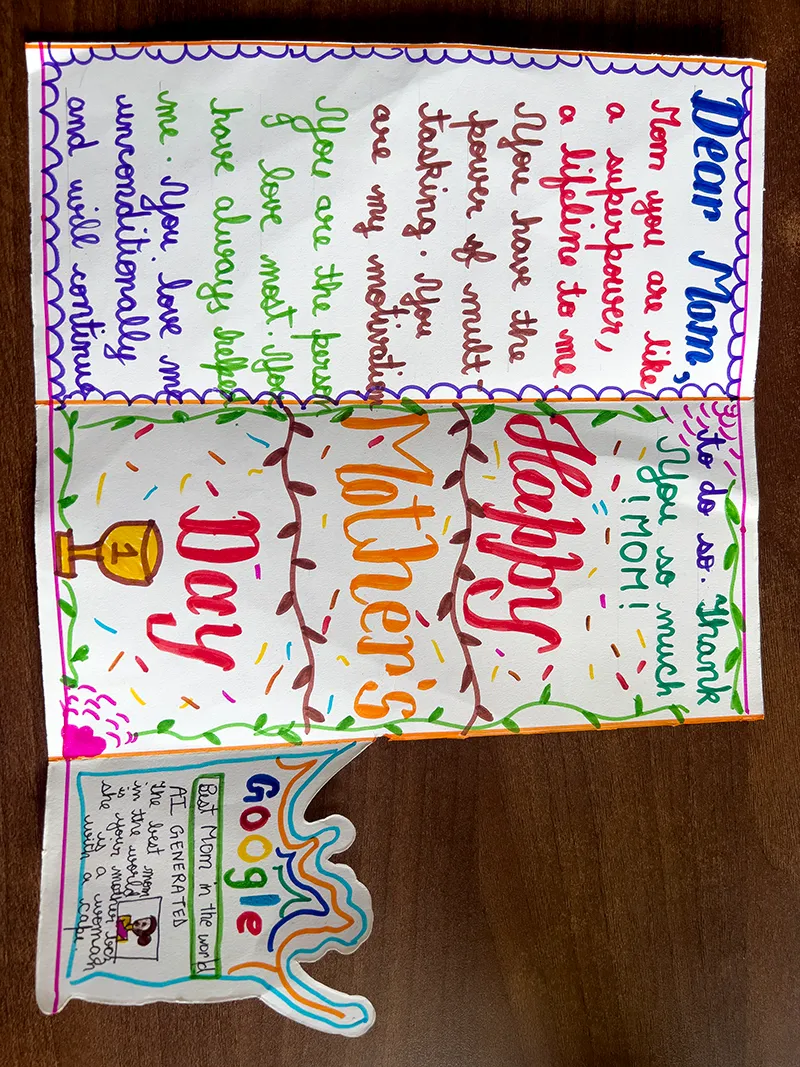 Dear Mom,
Mom you are like
a superpower,
a lifeline to me.
You have the
power of mult-
tasking. You
are my motivation
You are the person
I love most. You
have always helped
me. You love me
unconditionally
and will continue
to do so. Thank
You so much
!MOM!
Happy
Mother's
Day
1
Google
Best Mom in the world
AI GENERATED
the best mom
in the world
is your mother
she is a woman
with a cape.